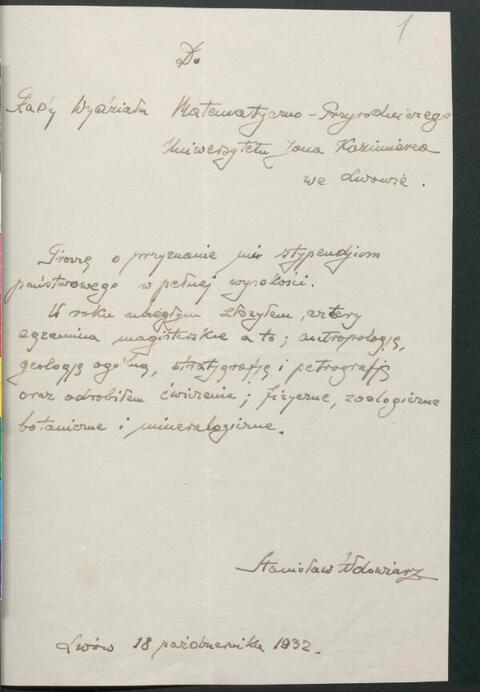 1
Do
Rady Wydziału Matematyczno-Przyrodniczego
Uniwersytetu Jana Kazimierza
we Lwowie.
Proszę o przyznanie mi stypendjum
państwowego w pełnej wysokości.
W roku ubiegłym złożyłem cztery
egzamina magisterskie a to; antropologję,
geologję ogólną, stratygrafję i petrografję
oraz odrobiłem ćwiczenia; fizyczne, zoologiczne
botaniczne i mineralogiczne.
Stanisław Wdowiarz
Lwów 18 października 1932.